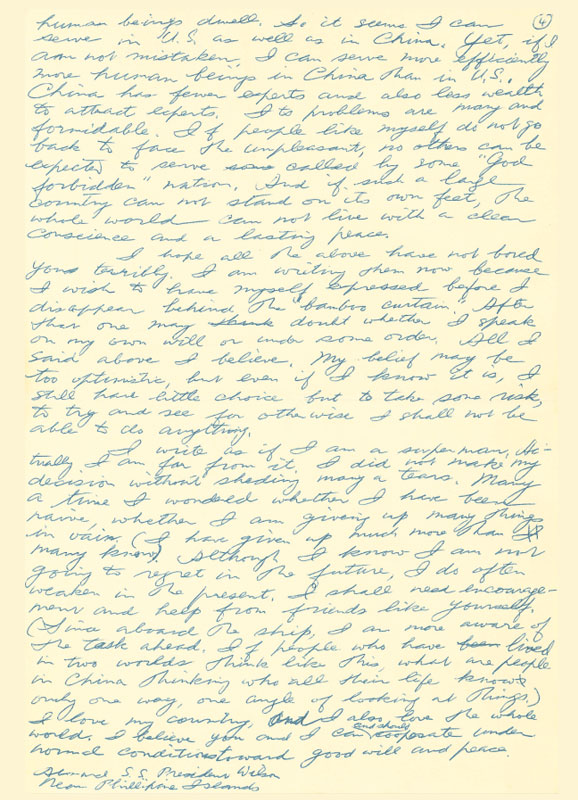 ④
human beings dwell. So it seems I can
serve in U.S. as well as in China. Yet, if I
am not mistaken, I can serve more efficiently
more human beings in China than in U.S..
China has fewer experts and also less wealth
to attract experts. Its problems are many and
formidable. If people like myself do not go
back to face the unpleasant, no others can be
expected to serve called by some "God
forbidden" nation. And if such a large
country can not stand on its own feet, the
whole world can not live with a clear
conscience and a lasting peace.
I hope all the above have not bored
you terribly. I am writing them now because
I wish to have myself expressed before I
disappear behind the "bamboo curtain". After
that one may think doubt whether I speak
on my own will or under some order. All I
said above I believe. My belief may be
too optimistic, but even if I know it is, I
still have little choice but to take some risk,
to try and see for otherwise I shall not be
able to do anything.
I write as if I am a super man. Ac-
tually, I am far from it. I did not make my
decision without sheding many a tears. Many
a time I wondered whether I have been
naive, whether I am giving up many things
in vain. (I have given up much more than
many know). Although I know I am not
going to regret in the future, I do often
weaken in the present. I shall need encourage-
ment and help from friends like yourself.
(Since aboard the ship, I am more aware of
the task ahead. If people who have been lived
in two worlds think like this, what are people
in China thinking who all their life knows
only one way, one angle of looking at things.)
I love my country, and I also love the whole
world. I believe you and I can and should cooperate under
normal conditions toward good will and peace.
Aboard S.S. President Wilson
Near Phillipine Islands